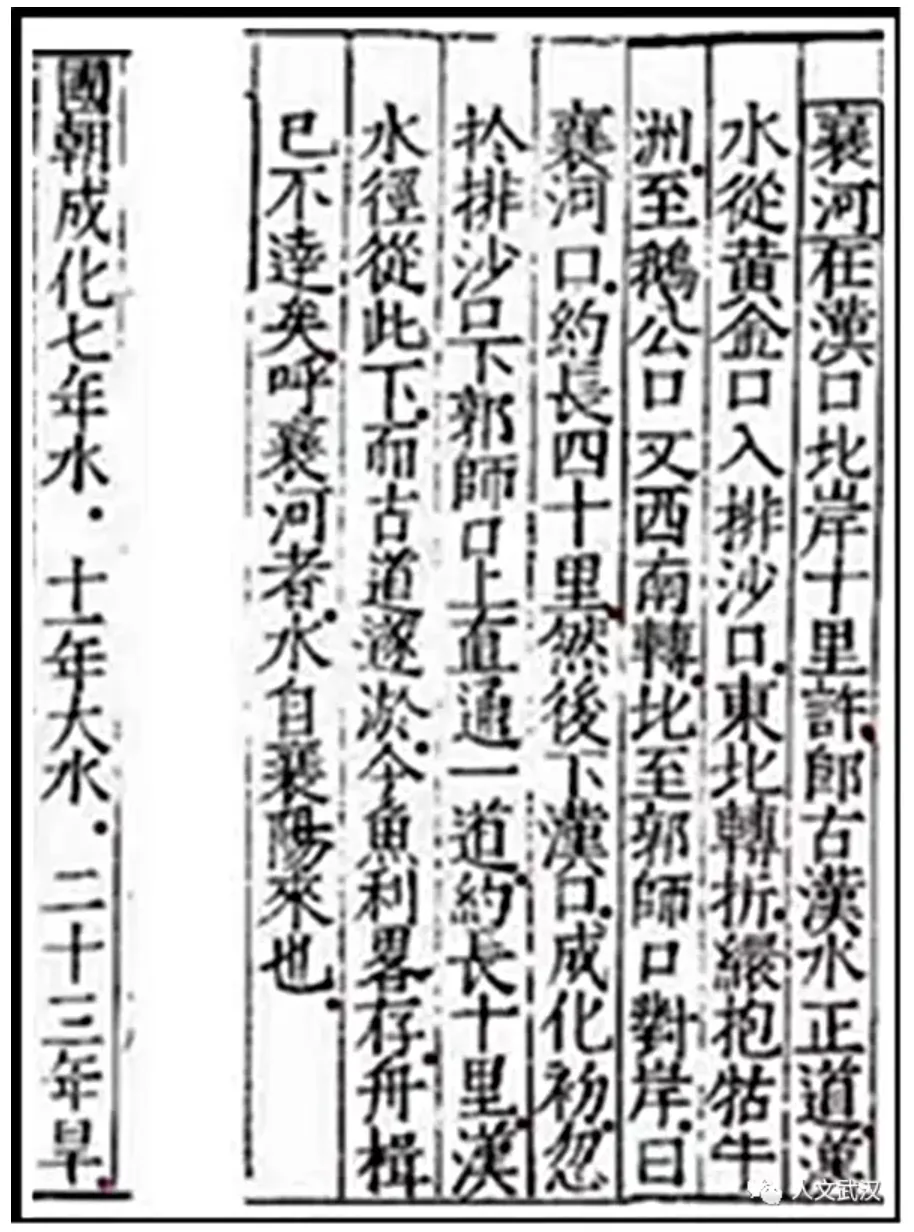 襄河在漢口北岸十里許即古漢水正道漢
水從黄金口入排沙口東北轉折繯抱牯牛
洲至鵝公口又西南轉北至郭師口對岸曰
襄河口約長四十里然後下漢口成化初忽
扵排沙口下郭師口上直通一道約長十里漢
水徑從此下而古道遂淤今魚利畧存舟楫
已不逹矣呼襄河者水自襄陽來也
國朝成化七年水．十一年大水．二十三年旱
人文武汉